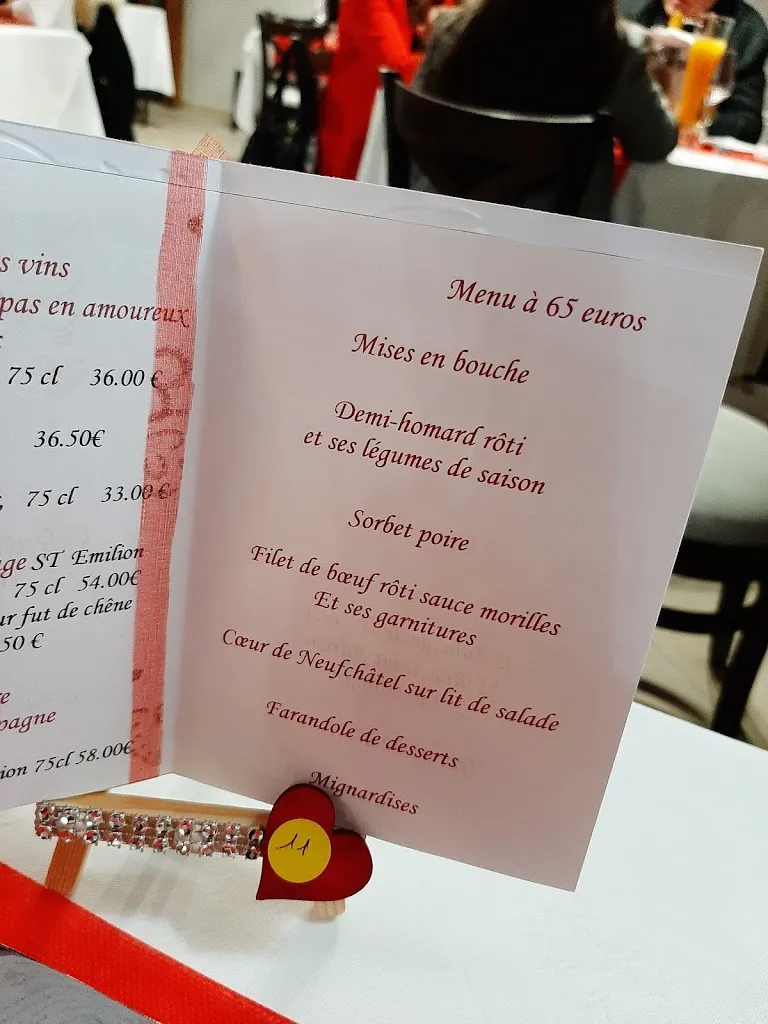 s vins
pas en amoureux
75 cl 36.00 €
36.50€
75 cl 33.00 €
ge ST Emilion
75 cl 54.00€
ur fut de chêne
50 €
re
pagne
ion 75cl 58.00€
Menu à 65 euros
Mises en bouche
Demi-homard rôti
et ses légumes de saison
Sorbet poire
Filet de bœuf rôti sauce morilles
Et ses garnitures
Cœur de Neufchâtel sur lit de salade
Farandole de desserts
Mignardises
11